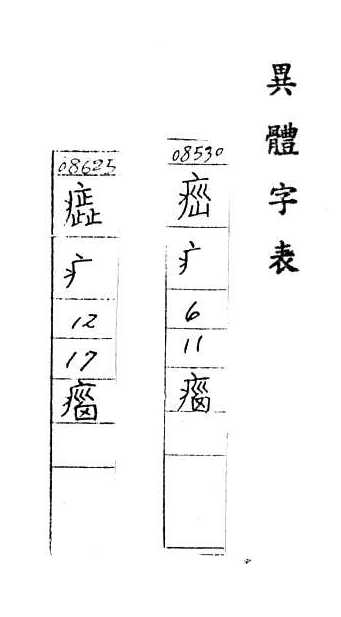 異體字表
08530
疒
6
11
08625
疒
12
17